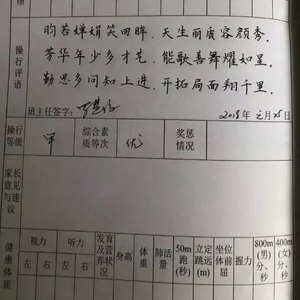 昀若婵娟笑回眸，天生丽质容颜秀。
操行评语
芳华年少多才艺，能歌善舞耀如星。
勤思多问知上进，开拓局面翔千里。
班主任签字：
2018年 元月25日
操行等级
甲
综合素质等次
优
奖惩情况
家长意见与建议
健康体质
视力
左 右
听力
左 右
发育及营养状况
身高
体重
肺活量
50m跑(秒)
立定跳远(m)
坐位体前屈
握力
800m(男)分、秒
400m(女)分、秒